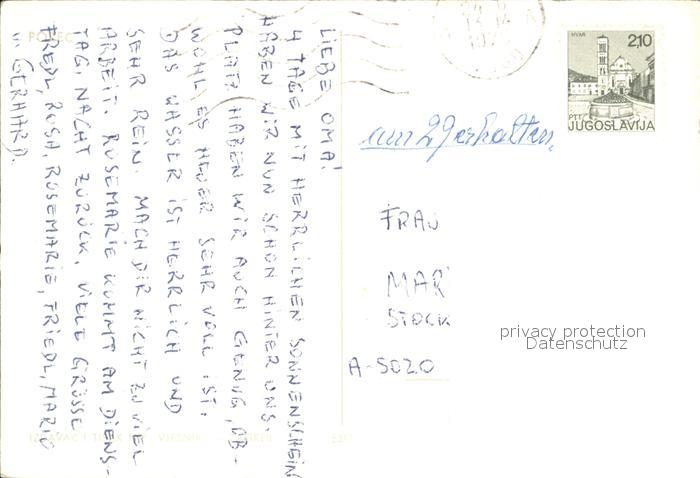 LIEBE OMA!
4 TAGE MIT HERRLICHEN SONNENSCHEIN
HABEN WIR NUN SCHON HINTER UNS.
PLATZ HABEN WIR AUCH GENUG, OB-
WOHL ES HEUER SEHR VOLL IST.
DAS WASSER IST HERRLICH UND
SEHR REIN. MACH DIR NICHT ZU VIEL
ARBEIT. ROSEMARIE KOMMT AM DIENS-
TAG NACHT ZURÜCK. VIELE GRÜSSE
FREDL, ROSA, ROSEMARIE, FRIEDL, MARIO
U. GERHARD.
am 29 erhalten.
FRAU
MAR
STOCK
A-5020
HVAR
2,10
PTT
JUGOSLAVIJA
privacy protection
Datenschutz